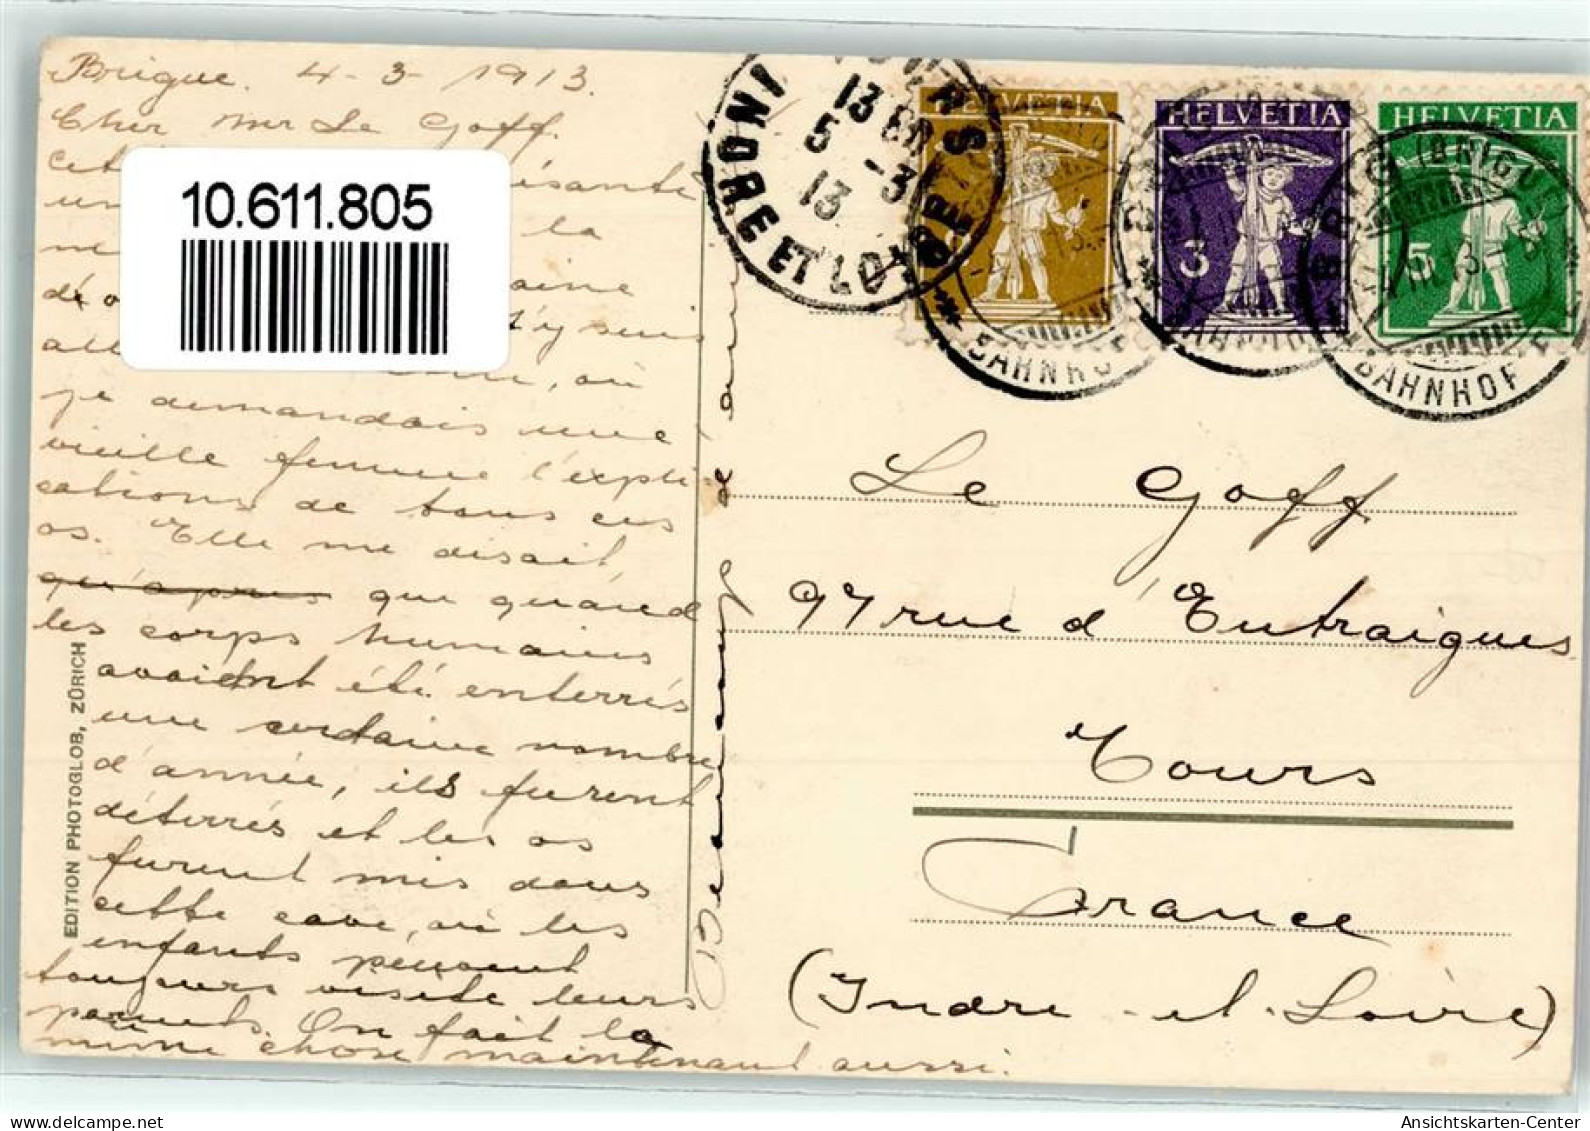 Brigue. 4-3-1913.
Cher Mr Le Goff.
10.611.805
la
t'y suis
où
je demandais une
vieille femme l'expli
cations de tous ces
os. Elle me disait
qu'apres que quand
les corps humains
avaient été enterrés
une certaine nombre
d'année, ils furent
déterrés et les os
furent mis dans
cette cave, où les
enfants peuvent
toujours visite leurs
parents. On fait la
même chose maintenant aussi.
EDITION PHOTOGLOB, ZÜRICH
Beaucoup
TOURS
13
5 -3
13
INDRE ET LOIRE
HELVETIA
HELVETIA
3
HELVETIA
5
BRIG (BRIGUE)
BAHNHOF
BAHNHOF
Le Goff
97 rue d'Entraigues
Tours
France
(Indre-et-Loire)
Ansichtskarten-Center